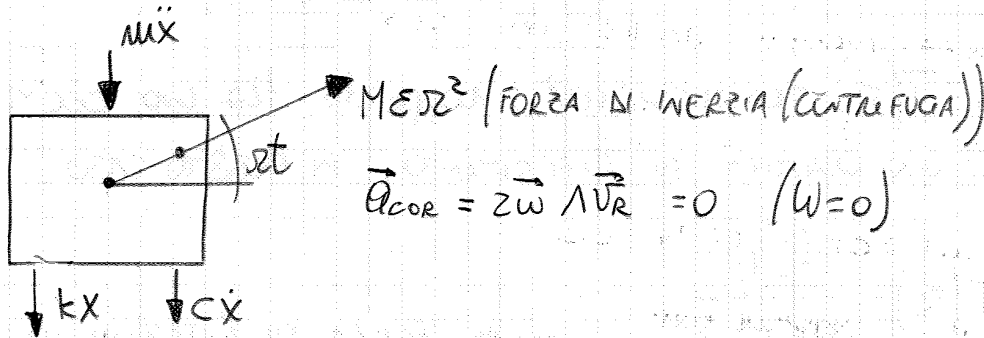 mẍ
MεΩ² (FORZA DI INERZIA (CENTRIFUGA))
Ωt
a⃗COR = 2ω⃗ ∧ v⃗R = 0 (ω=0)
kx
cẋ